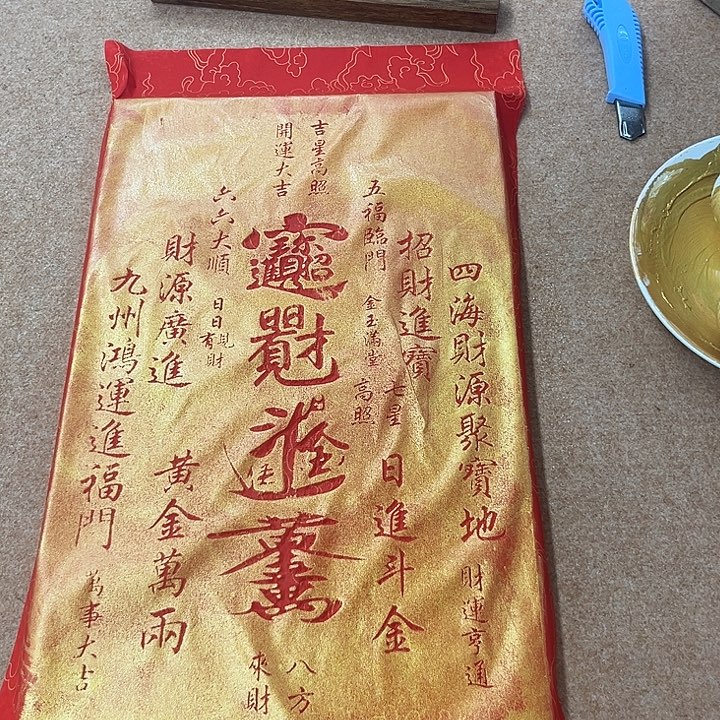 四海財源聚寶地
財運亨通
招財進寶
七星
高照
日進斗金
五福臨門
金玉滿堂
吉星高照
開運大吉
招財進寶
日日見財
日進斗金
黃金萬兩
八方
來財
六六大順
財源廣進
黃金萬兩
九州鴻運進福門
萬事大吉